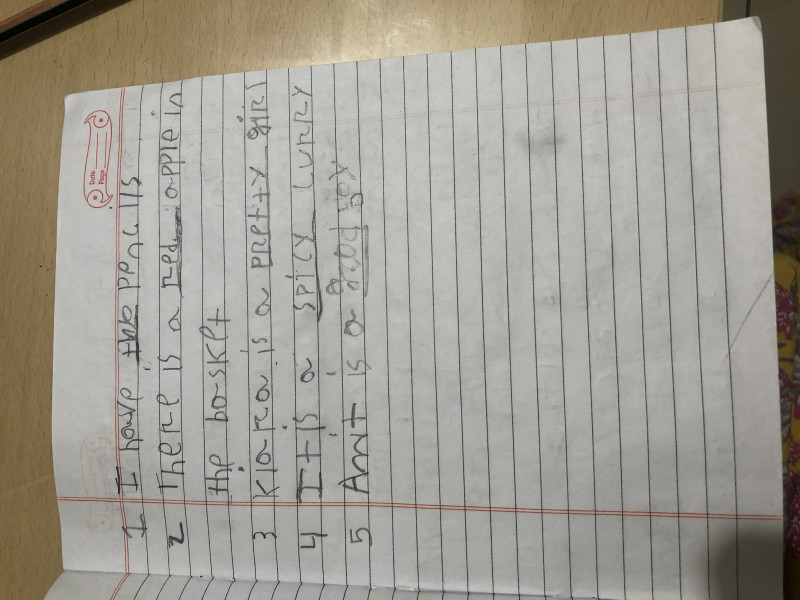 Date
Page
1 I have two pencils
2 There is a red apple in
the basket
3 Kiara is a pretty girl
4 It is a spicy curry
5 is a good boy